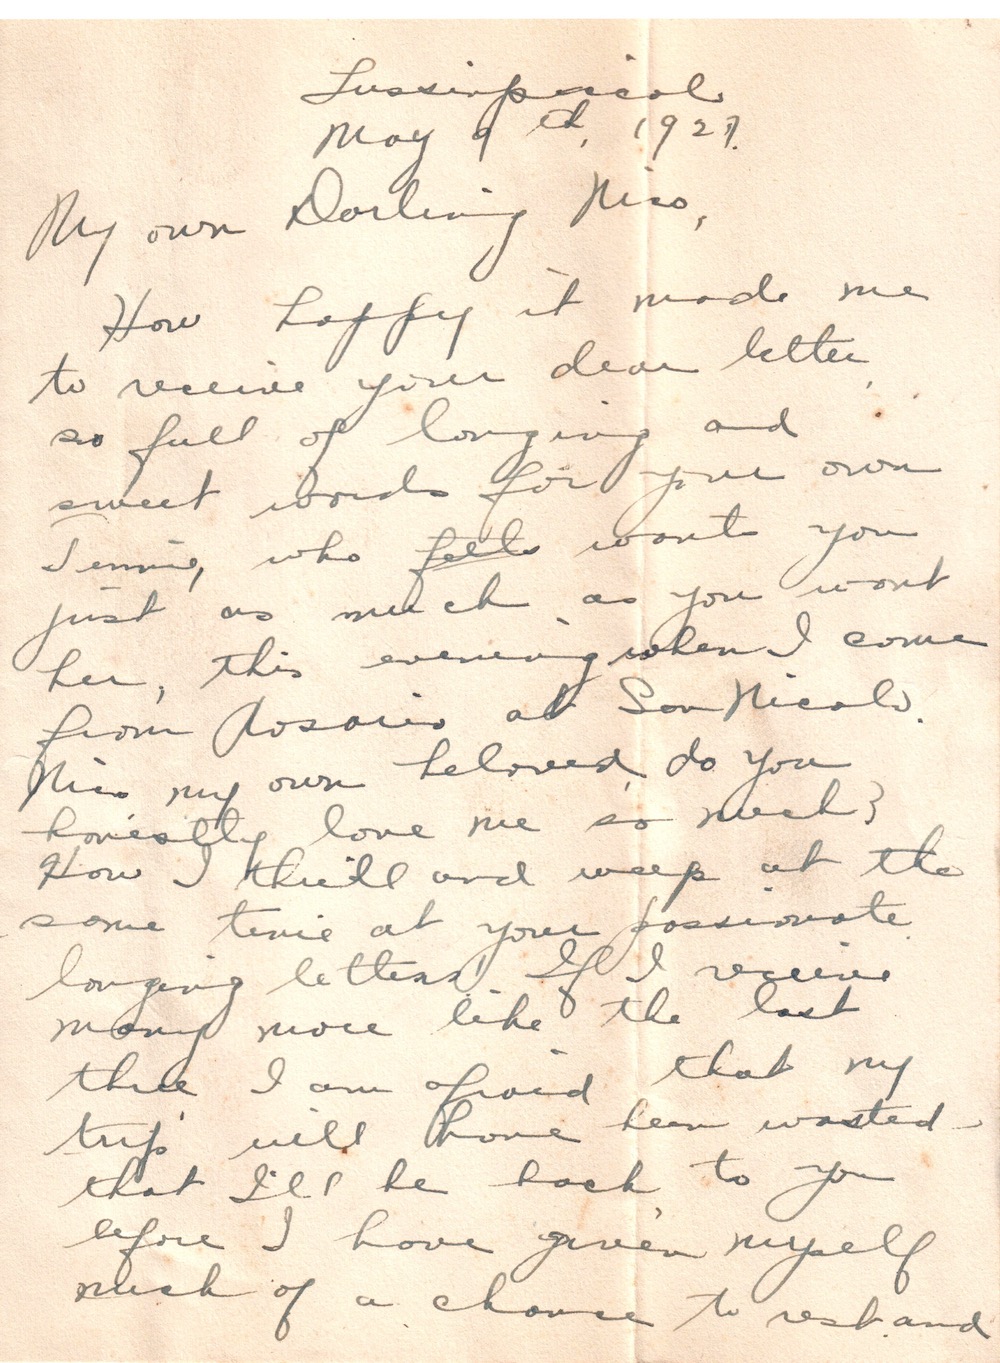 Lussinpiccol.
May 9th, 1927.
My own Darling Nino,
How happy it made me
to receive your dear letter,
so full of longing and
sweet words for your own
Jennie, who feels wants you
just as much as you want
her, this evening when I come
from Rosario at San Nicolo.
Nino my own beloved, do you
honestly love me so much?
How I thrill and weep at the
same time at your passionate
longing letters. If I receive
many more like the last
three I am afraid that my
trip will have been wasted -
that I'll be back to you
before I have given myself
much of a chance to rest and